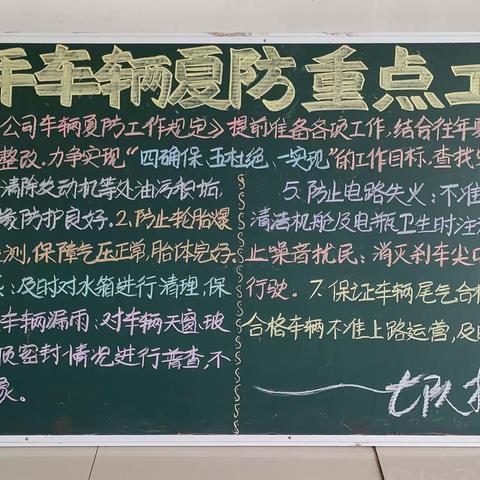 车辆夏防重点工
公司车辆夏防工作规定》提前准备各项工作,结合往年
整改,力争实现“四确保、五杜绝、一实现”的工作目标,查找
清除发动机等处油污积垢,
防护良好。2.防止轮胎爆
测,保障气压正常,胎体完好.
及时对水箱进行清理,保
车辆漏雨:对车辆天窗、玻
密封情况进行普查,不
象。
5.防止电路失火:不准
清洁机舱及电瓶卫生时注
止噪音扰民:消灭刹车尖
行驶。7.保证车辆尾气合
合格车辆不准上路运营,及
七队